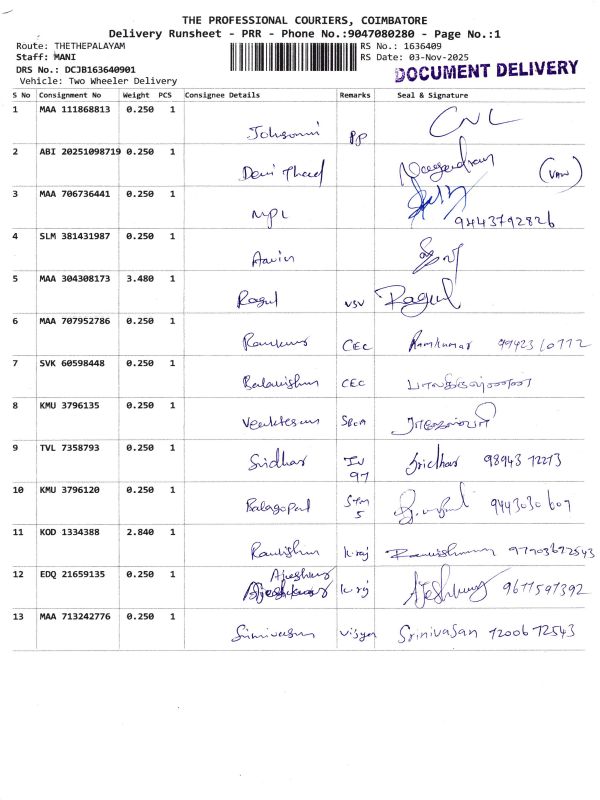 THE PROFESSIONAL COURIERS, COIMBATORE
Delivery Runsheet - PRR - Phone No.:9047080280 - Page No.:1
Route: THETHEPALAYAM
RS No.: 1636409
Staff: MANI
RS Date: 03-Nov-2025
DRS No.: DCJB163640901
DOCUMENT DELIVERY
Vehicle: Two Wheeler Delivery
S No Consignment No Weight PCS Consignee Details Remarks Seal & Signature
1 MAA 111868813 0.250 1
Johnsonni PP CNL
2 ABI 20251098719 0.250 1
Devi Thaed Naagendran
3 MAA 706736441 0.250 1
MPL 9443792826
4 SLM 381431987 0.250 1
Aavin
5 MAA 304308173 3.480 1
Ragul VSV Ragul
6 MAA 707952786 0.250 1
Ramkumar CEC Ramkumar
7 SVK 60598448 0.250 1
Balakrishnan CEC பாலகிருஷ்ணன்
8 KMU 3796135 0.250 1
Venkatesan
9 TVL 7358793 0.250 1
Sridhar IV 97 Sridhar 98943 72273
10 KMU 3796120 0.250 1
Balagopal 5 9443030607
11 KOD 1334388 2.840 1
K.raj
12 EDQ 21659135 0.250 1
Ajeshkumar
K.raj Ajeshkumar 9677597392
13 MAA 713242776 0.250 1
Srinivasan Vijay Srinivasan 72006 72543